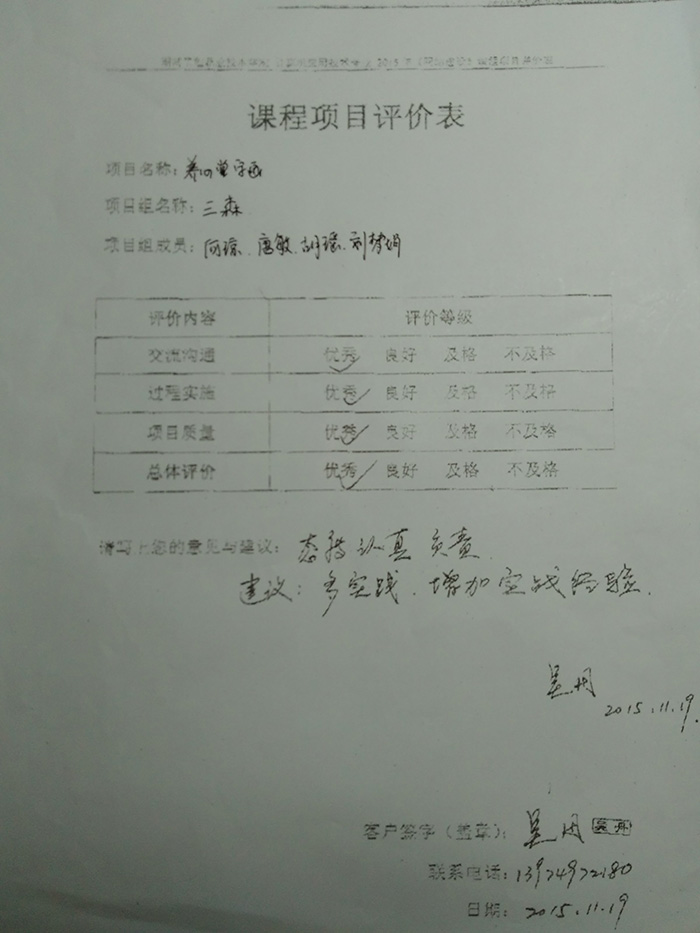 课程项目评价表
项目名称：
项目组名称：三森
项目组成员：何琼、唐敏、胡瑶、刘梦娟
评价内容 评价等级
交流沟通 优秀 良好 及格 不及格
过程实施 优秀 良好 及格 不及格
项目质量 优秀 良好 及格 不及格
总体评价 优秀 良好 及格 不及格
请写上您的意见与建议：态度认真负责.
建议：多实践.增加实战经验.
2015.11.19.
客户签字（盖章）：
联系电话：13974972180
日期：2015.11.19